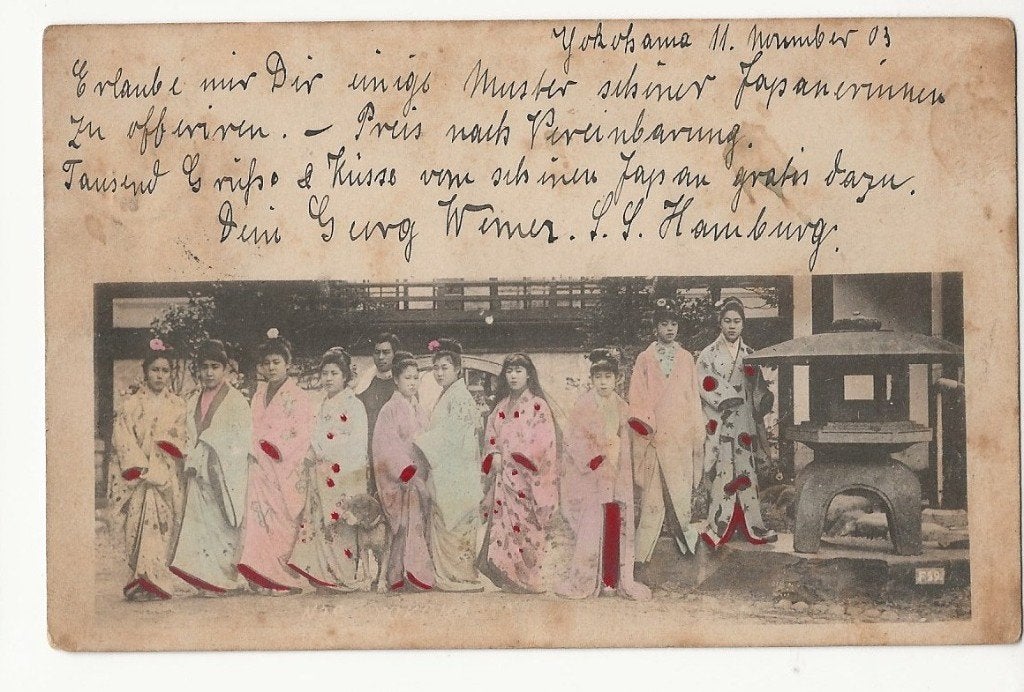 Yokohama 11. November 03
Erlaube mir Dir einige Muster schöner Japanerinnen
zu offeriren. – Preis nach Vereinbarung.
Tausend Grüße & Küsse vom schönen Japan gratis dazu.
Dein Georg Werner. S. S. Hamburg.